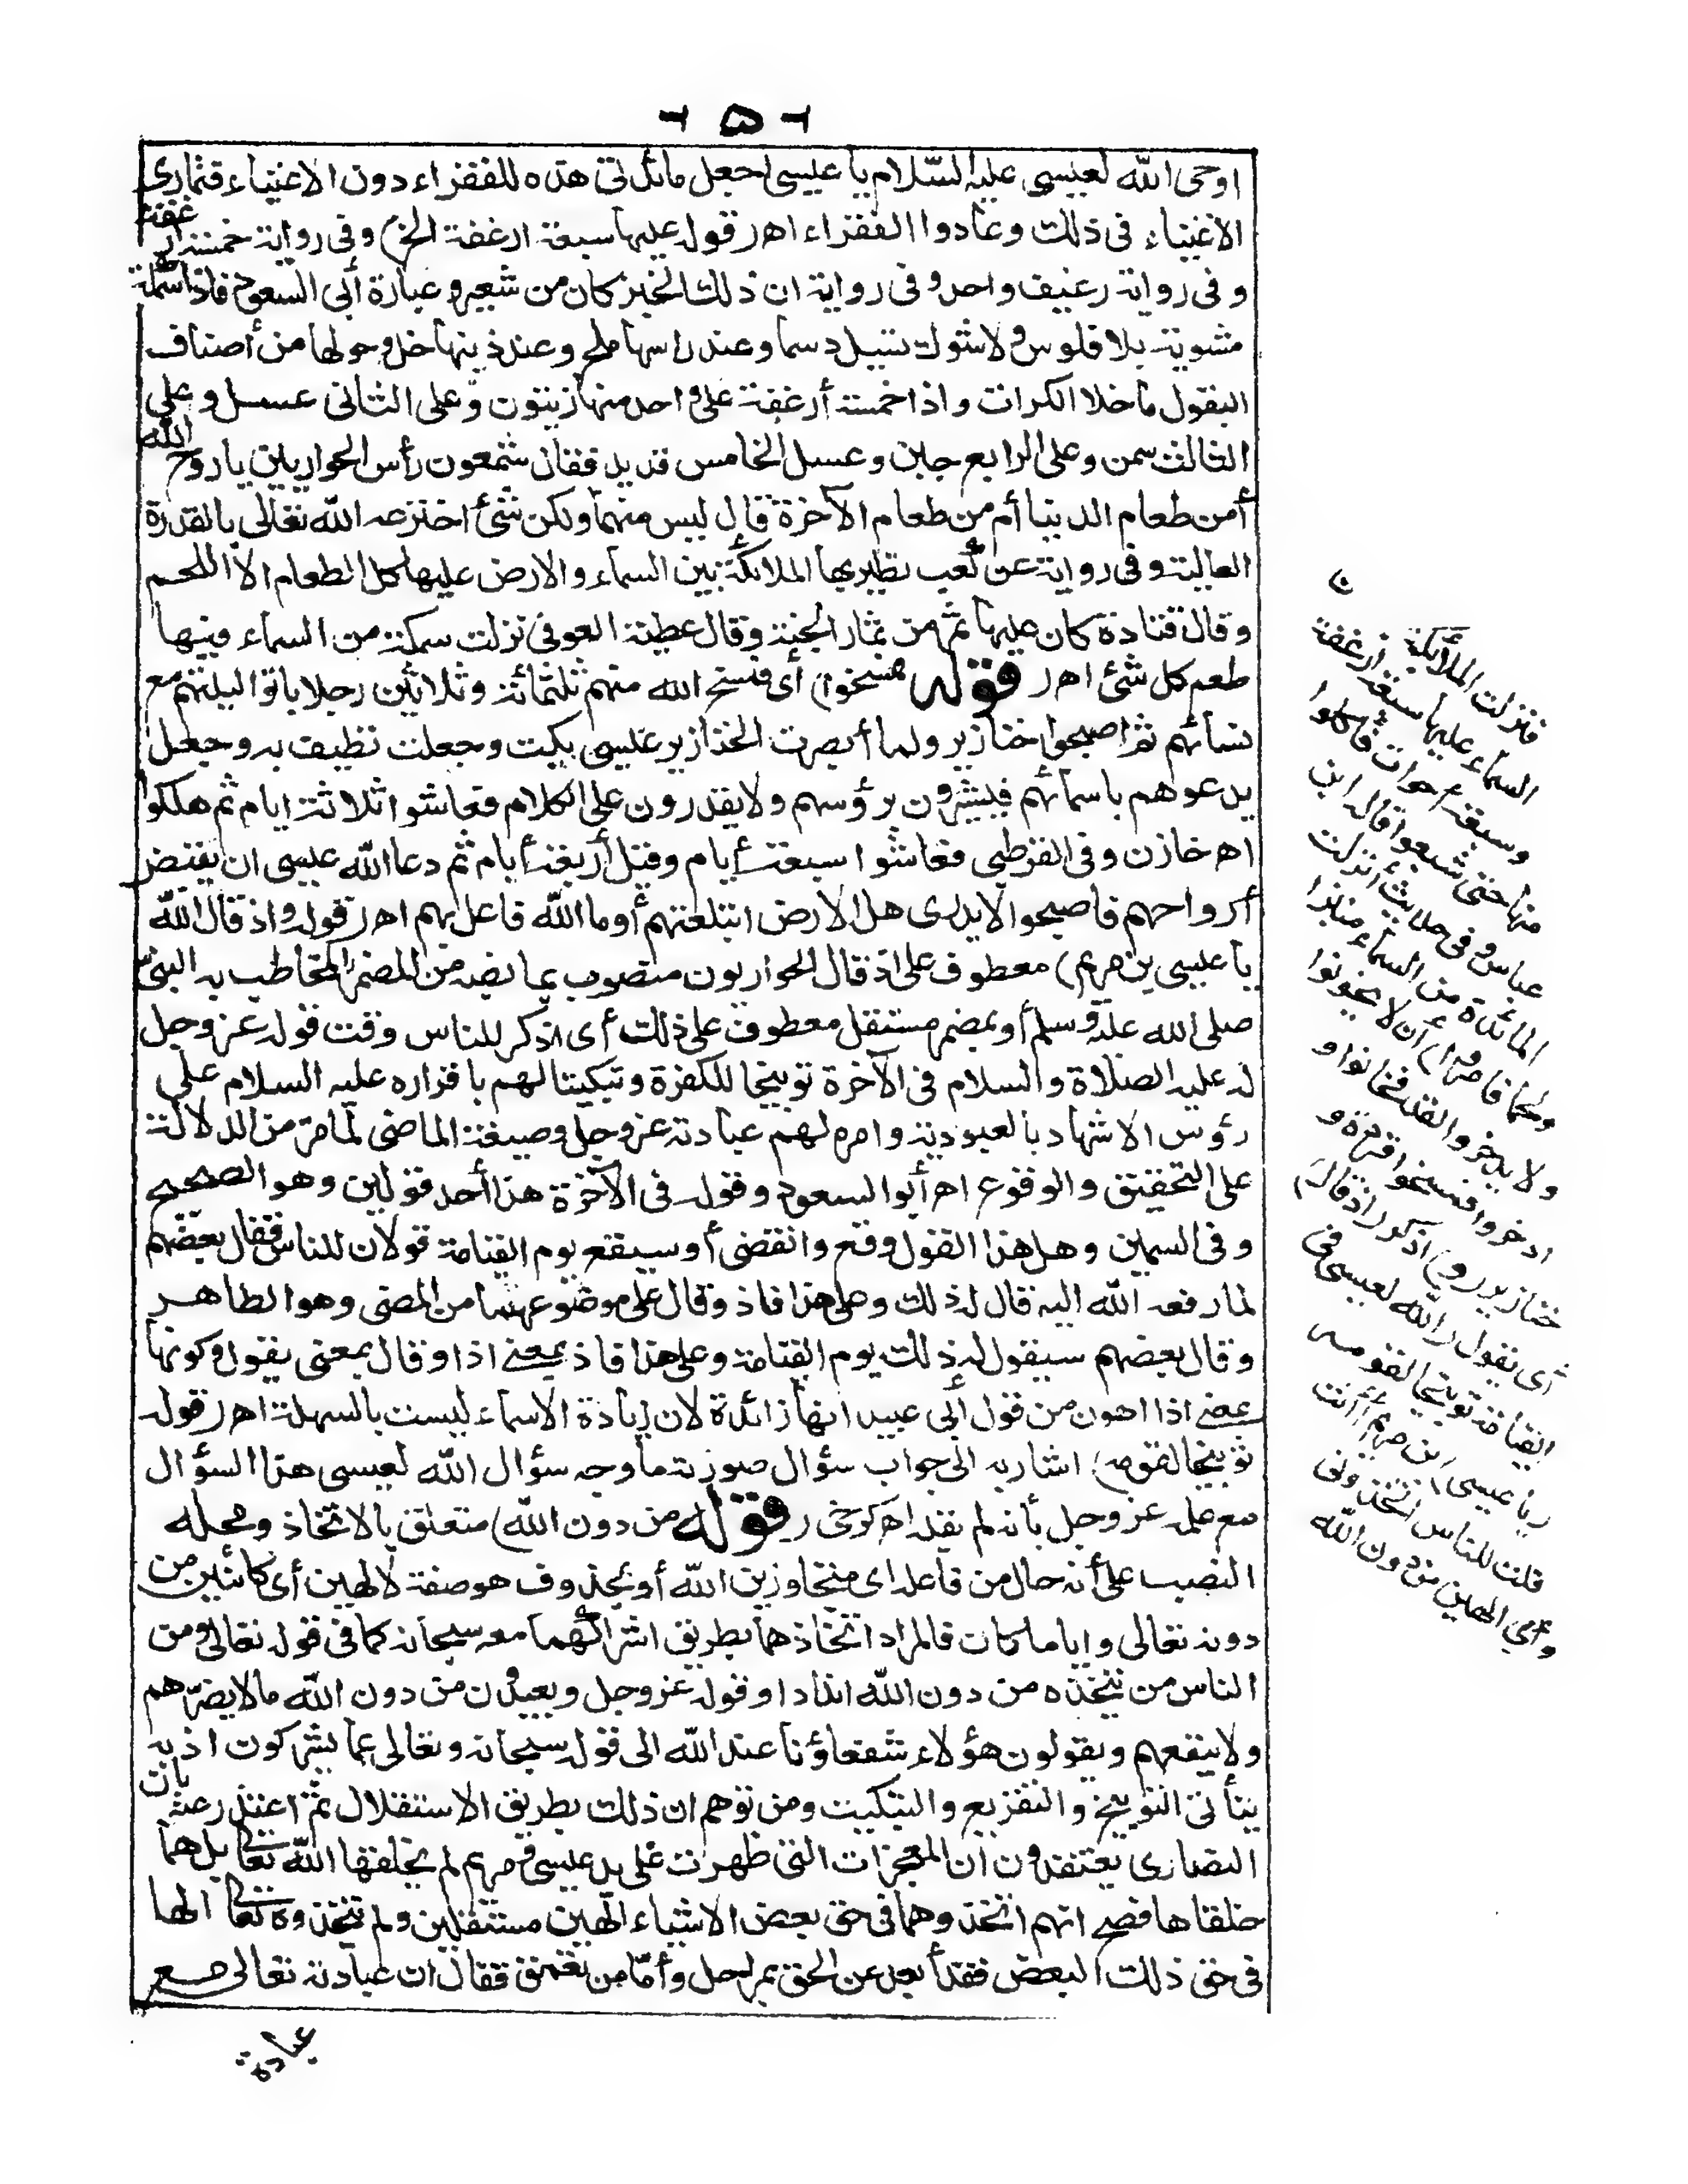 - ۵ -
اوحى الله لعيسى عليه السّلام يا عيسى اجعل مائدتى هذه للفقراء دون الاغنياء فتمارى
الاغنياء فى ذلك وعادوا الفقراء اهـ (قوله عليها سبعة ارغفة الخ) وفى رواية خمسة ارغفة
وفى رواية رغيف واحد وفى رواية ان ذلك الخبز كان من شعير وعبارة أبى السعود فاذا سمكة
مشوية بلا فلوس ولا شوك تسيل دسما وعند راسها ملح وعند ذنبها خل وحولها من أصناف
البقول ما خلا الكراث واذا خمسة أرغفة على واحد منها زيتون وعلى الثانى عسل وعلى
الثالث سمن وعلى الرابع جبن وعسل الخامس قديد فقال شمعون رأس الحواريين يا روح الله
أمن طعام الدنيا أم من طعام الآخرة قال ليس منهما ولكن شئ اخترعه الله تعالى بالقدرة
العالية وفى رواية عن كعب تطير بها الملائكة بين السماء والارض عليها كل الطعام الا اللحم
وقال قتادة كان عليها ثمر من ثمار الجنة وقال عطية العوفى نزلت سمكة من السماء فيها
طعم كل شئ اهـ (قوله فمسخوا) أى فمسخ الله منهم ثلثمائة وثلاثين رجلا باتوا ليلتهم مع
نسائهم ثم اصبحوا خنازير ولما أبصرت الخنازير عيسى بكت وجعلت تطيف به وجعل
يدعوهم باسمائهم فيشيرون برؤسهم ولا يقدرون على الكلام فعاشوا ثلاثة ايام ثم هلكوا
اهـ خازن وفى القرطبى فعاشوا سبعة أيام وقيل أربعة أيام ثم دعا الله عيسى ان يقبض
أرواحهم فاصبحوا لا يدرى هل الارض ابتلعتهم أو ما الله فاعل بهم اهـ (قوله واذ قال الله
يا عيسى بن مريم) معطوف على اذ قال الحواريون منصوب بما نصبه من المضمر المخاطب به النبى
صلى الله عليه وسلم أو بمضمر مستقل معطوف على ذلك أى اذكر للناس وقت قوله عز وجل
له عليه الصلاة والسلام فى الآخرة توبيخا للكفرة وتبكيتا لهم باقراره عليه السلام على
رؤس الاشهاد بالعبودية وامره لهم عبادته عز وجل وصيغة الماضى لما مرّ من الدلالة
على التحقيق والوقوع اهـ أبو السعود وقوله فى الآخرة هذا أحد قولين وهو الصحيح
وفى السمين وهل هذا القول وقع وانقضى أو سيقع يوم القيامة قولان للناس فقال بعضهم
لما رفعه الله اليه قال له ذلك وعلى هذا فاذ وقال على موضوعهما من المضى وهو الظاهر
وقال بعضهم سيقول له ذلك يوم القيامة وعلى هذا فاذ بمعنى اذا وقال بمعنى يقول وكونها
بمعنى اذا اهون من قول أبى عبيد انها زائدة لان زيادة الاسماء ليست بالسهلة اهـ (قوله
توبيخا لقومه) اشار به الى جواب سؤال صورته ما وجه سؤال الله لعيسى هذا السؤال
مع علمه عز وجل بأنه لم يقله اهـ كرخى (قوله من دون الله) متعلق بالاتخاذ ومحله
النصب على أنه حال من فاعله اى متجاوزين الله أو بمحذوف هو صفة لالهين أى كائنين من
دونه تعالى واياما كان فالمراد اتخاذهما بطريق اشراكهما معه سبحانه كما فى قوله تعالى ومن
الناس من يتخذ من دون الله اندادا وقوله عز وجل ويعبدون من دون الله ما لا يضرّهم
ولا ينفعهم ويقولون هؤلاء شفعاؤنا عند الله الى قوله سبحانه وتعالى عما يشركون اذ به
يتأتى التوبيخ والتقريع والتبكيت ومن توهم ان ذلك بطريق الاستقلال ثم اعتذر عنه بان
النصارى يعتقدون ان المعجزات التى ظهرت على يد عيسى ومريم لم يخلقها الله تعالى بل هما
خلقاها فصح انهم اتخذوهما فى حق بعض الاشياء الهين مستقلين ولم يتخذوه تعالى الها
فى حق ذلك البعض فقد أبعد عن الحق بمراحل وأمّا من تعمق فقال ان عبادته تعالى مع
عبادة
فنزلت الملائكة
السماء عليها سبعة ارغفة
وسبعة احوات فأكلوا
منها حتى شبعوا قاله ابن
عباس وفى حديث أنزلت
المائدة من السماء خبزا
ولحما فامروا أن لا يخونوا
ولا يدخروا لغد فخانوا و
ادخروا فمسخوا قردة و
خنازير (و) اذكر (اذ قال)
أى يقول (الله) لعيسى فى
القيامة توبيخا لقومه
(يا عيسى ابن مريم أأنت
قلت للناس اتخذونى
وأمى الهين من دون الله